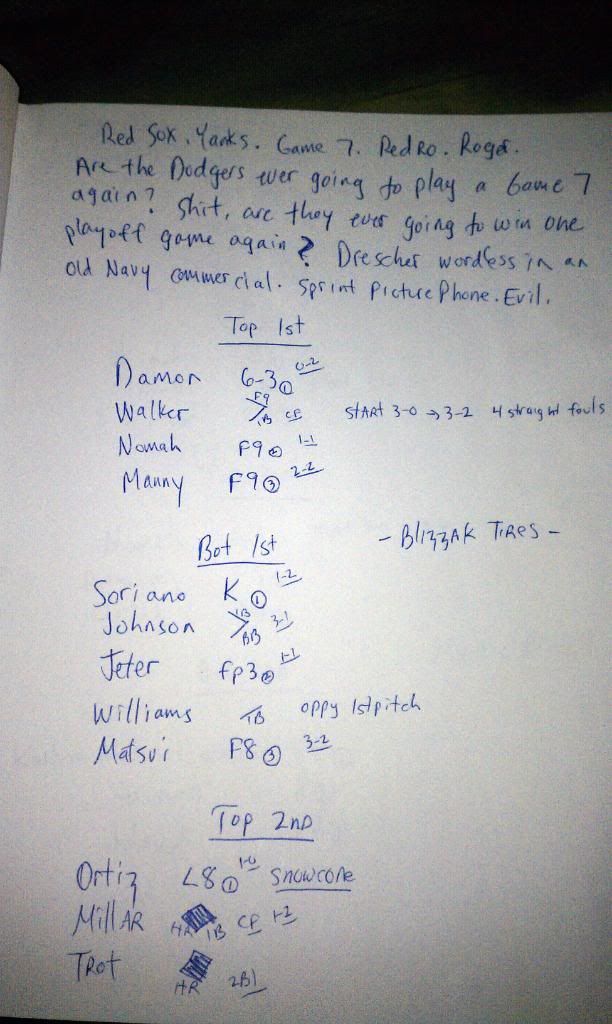 Red Sox. Yanks. Game 7. Pedro. Roger.
Are the Dodgers ever going to play a Game 7
again? Shit, are they ever going to win one
playoff game again? Drescher wordless in an
Old Navy commercial. Sprint Picture Phone. Evil.
Top 1st
Damon 6-3 ① 0-2
Walker F9 1B CF START 3-0 → 3-2 4 straight fouls
Nomah F9 ② 1-1
Manny F9 ③ 2-2
Bot 1st - Blizzak Tires -
Soriano K ① 1-2
Johnson BB 3-1
Jeter fp3 ② 1-1
Williams 1B oppy 1st pitch
Matsui F8 ③ 3-2
Top 2nd
Ortiz L8 ① 1-0 snowcone
Millar HR 1B CF 1-2
Trot HR 2B1